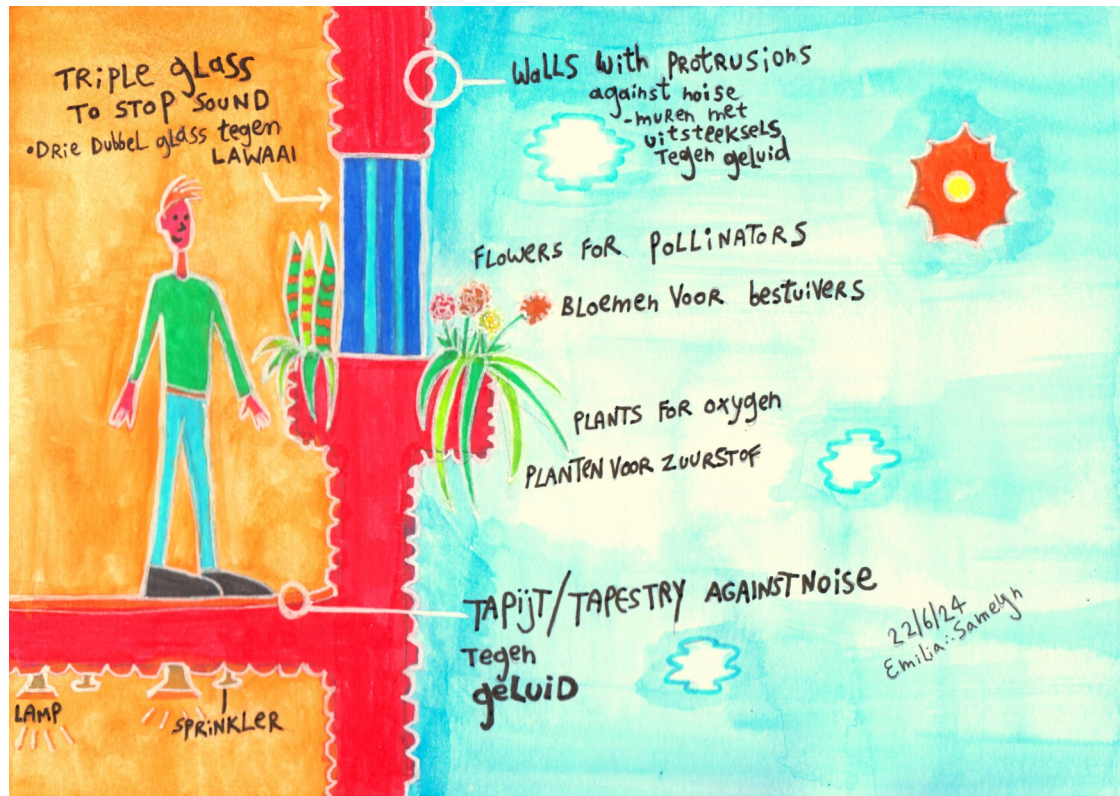 TRiPLE gLASS
TO STOP SOUND
•DRie Dubbel glass tegen
LAWAAI
WALLS with PROTRUSIONS
against noise
-muren met
uitsteeksels
Tegen geluid
FLOWERS FOR POLLINATORS
BLoemen Voor bestuivers
PLANTS FOR oxygen
PLANTEN VOOR ZUURSTOF
TAPijT/TAPESTRY AGAINST NOiSE
Tegen
geluiD
22/6/24
LAMP
SPRiNKLER